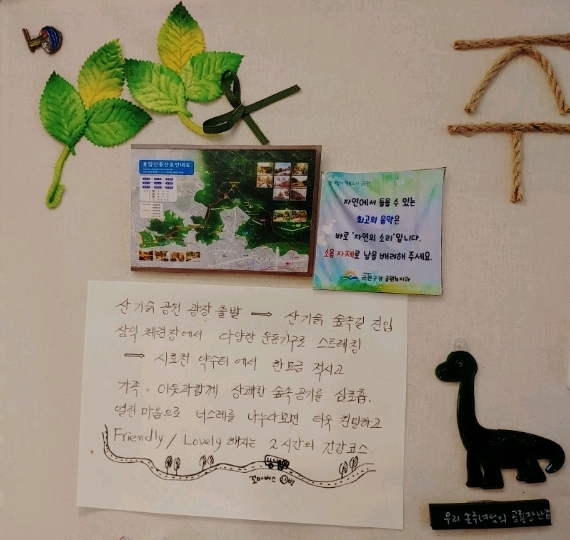 호암산등산로안내도
자연에서 들을 수 있는
최고의 음악은
바로 '자연의 소리'입니다.
소음 자제로 남을 배려해 주세요.
금천구청 공원녹지과
산기슭 공원 광장 출발 → 산기슭 숲속길 진입
삼익 체련장에서 다양한 운동기구로 스트레칭
→ 시흥천 약수터에서 한모금 적시고
가족·이웃과함께 상쾌한 숲속공기를 심호흡.
열린 마음으로 너스레를 나누다보면 더욱 힐링하고
Friendly / Lovely 해지는 2시간의 건강코스
꼬마버스 ①번
우리 손주녀석의 공룡장난감